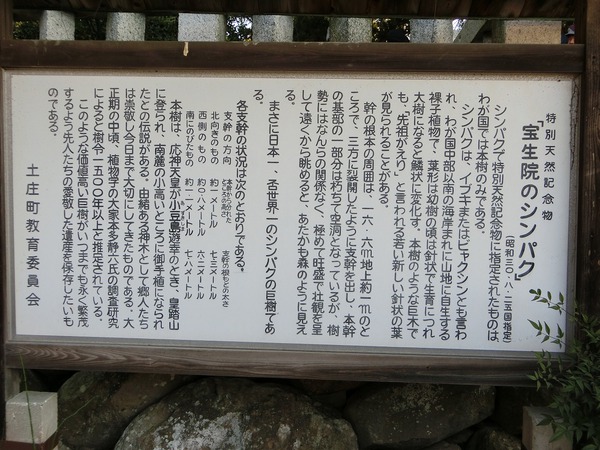 特別天然記念物
「宝生院のシンパク」
（昭和三〇・八・二五国指定）
シンパクで特別天然記念物に指定されたものは、
わが国では本樹のみである。
シンパクは、イブキまたはビャクシンとも言わ
れ、わが国中部以南の海岸まれに山地に自生する
裸子植物で、葉形は幼樹の頃は針状で生育につれ
大樹になると鱗状に変化す。本樹のような巨木で
も、「先祖がえり」と言われる若い新しい針状の葉
が見られることがある。
幹の根本の周囲は、一六・六m地上約一mのと
ころで、三方に裂開したように支幹を出し、本幹
の基部の一部分は朽ちて空洞となっているが、樹
勢にはなんらの関係なく、極めて旺盛で壮観を呈
して遠くから眺めると、あたかも森のように見え
る。
まさに日本一、否世界一のシンパクの巨樹であ
る。
各支幹の状況は次のとおりである。
支幹の方向
支幹の根もとの太さ
北向きのもの 約一メートル 七三メートル
西側のもの 約〇・八メートル 六二メートル
南にのびたもの 約一・二メートル 七八メートル
本樹は、応神天皇が小豆島遊幸のとき、皇踏山
に登られ、南麓の小高いところに御手植になられ
たとの伝説がある。由緒ある神木として郷人たち
は崇敬し今日まで大切にしてきたものである。大
正期の中頃、植物学の大家本多静六氏の調査研究
によると樹令一五〇〇年以上と推定されている。
このような価値高い巨樹がいつまでも永く繁茂
するよう先人たちの愛敬した遺産を保存したいも
のである。
土庄町教育委員会